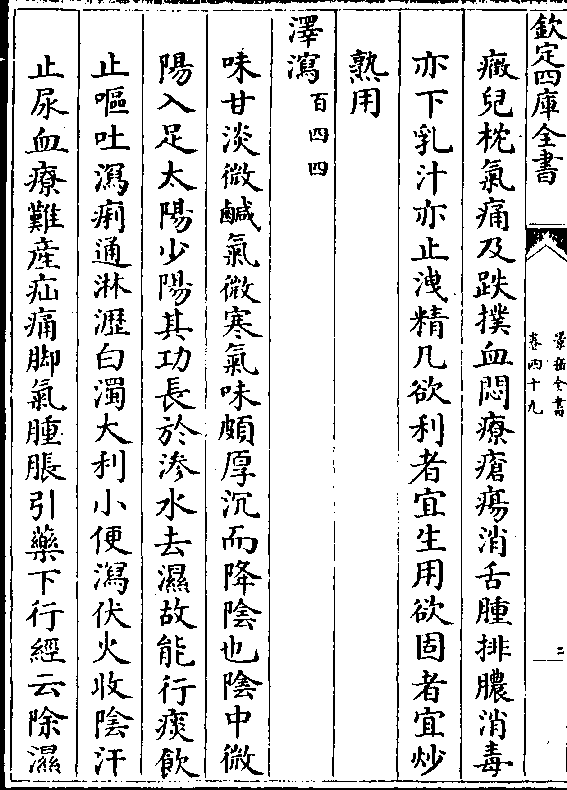 欽定四庫全書
景岳全書
卷四十九
二
癥兒枕氣痛及跌撲血悶療瘡瘍消舌腫排膿消毒
亦下乳汁亦止洩精凡欲利者宜生用欲固者宜炒
熟用
澤瀉百四四
味甘淡微鹹氣微寒氣味頗厚沉而降隂也隂中微
陽入足太陽少陽其功長於渗水去濕故能行痰飲
止嘔吐瀉痢通淋瀝白濁大利小便瀉伏火收隂汗
止尿血療難産疝痛脚氣腫脹引藥下行經云除濕